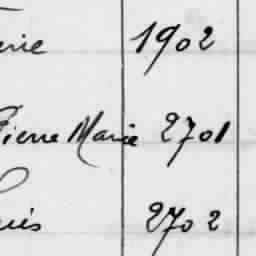 erie 1902
Pierre Marie 2701
uis 2702